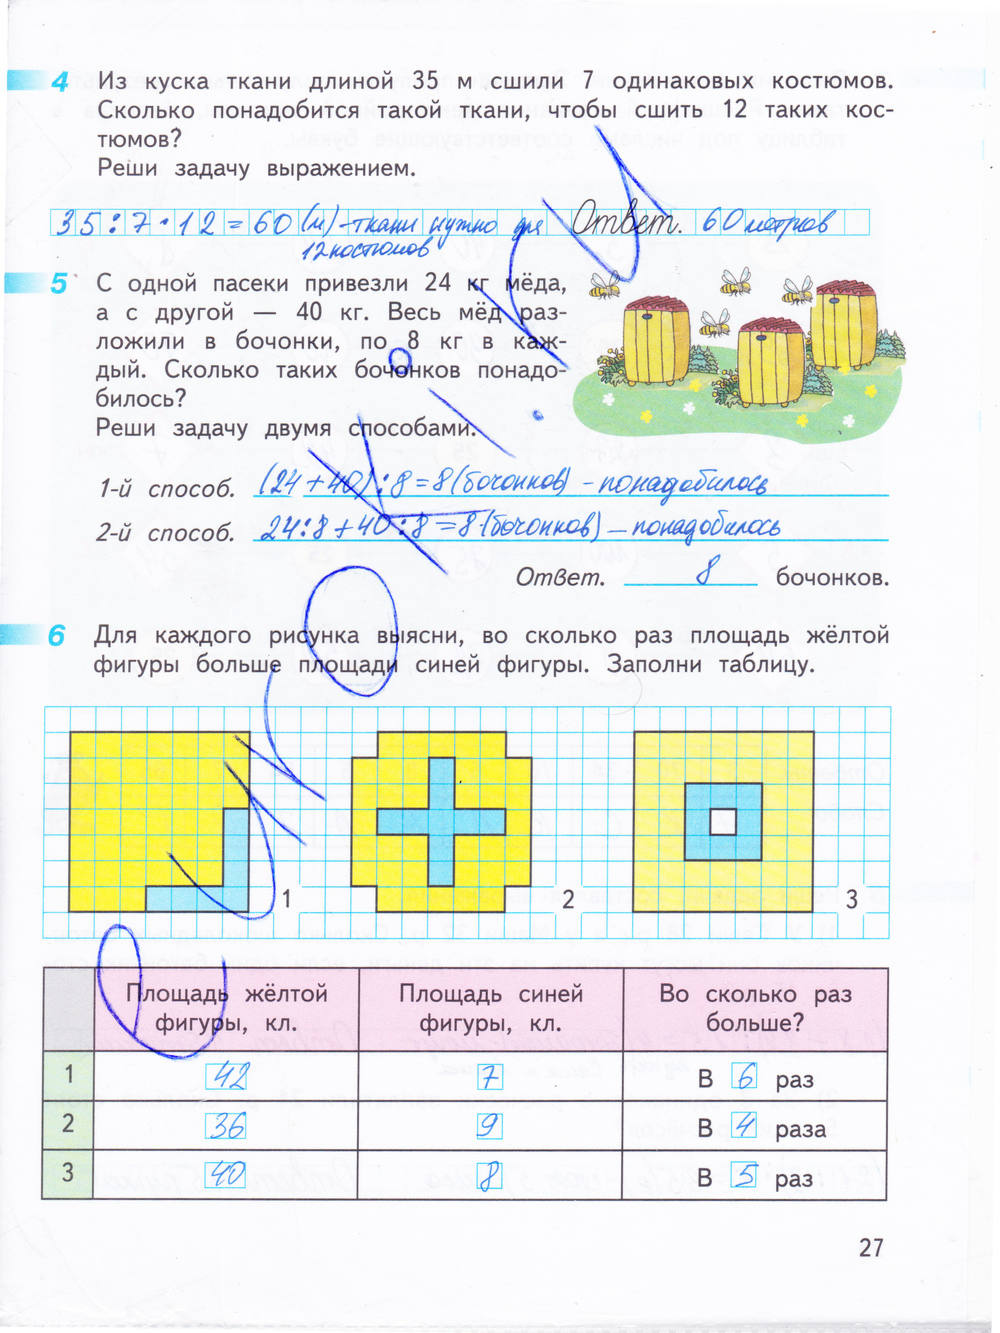 4 Из куска ткани длиной 35 м сшили 7 одинаковых костюмов.
Сколько понадобится такой ткани, чтобы сшить 12 таких кос-
тюмов?
Реши задачу выражением.
35:7·12=60 (м) – ткани нужно для Ответ. 60 метров
12 костюмов
5 С одной пасеки привезли 24 кг мёда,
а с другой — 40 кг. Весь мёд раз-
ложили в бочонки, по 8 кг в каж-
дый. Сколько таких бочонков понадо-
билось?
Реши задачу двумя способами.
1-й способ. (24+40):8=8(бочонков) – понадобилось
2-й способ. 24:8+40:8=8(бочонков) – понадобилось
Ответ. 8 бочонков.
6 Для каждого рисунка выясни, во сколько раз площадь жёлтой
фигуры больше площади синей фигуры. Заполни таблицу.
1 2 3
Площадь жёлтой Площадь синей Во сколько раз
фигуры, кл. фигуры, кл. больше?
1 42 7 В 6 раз
2 36 9 В 4 раза
3 40 8 В 5 раз
27